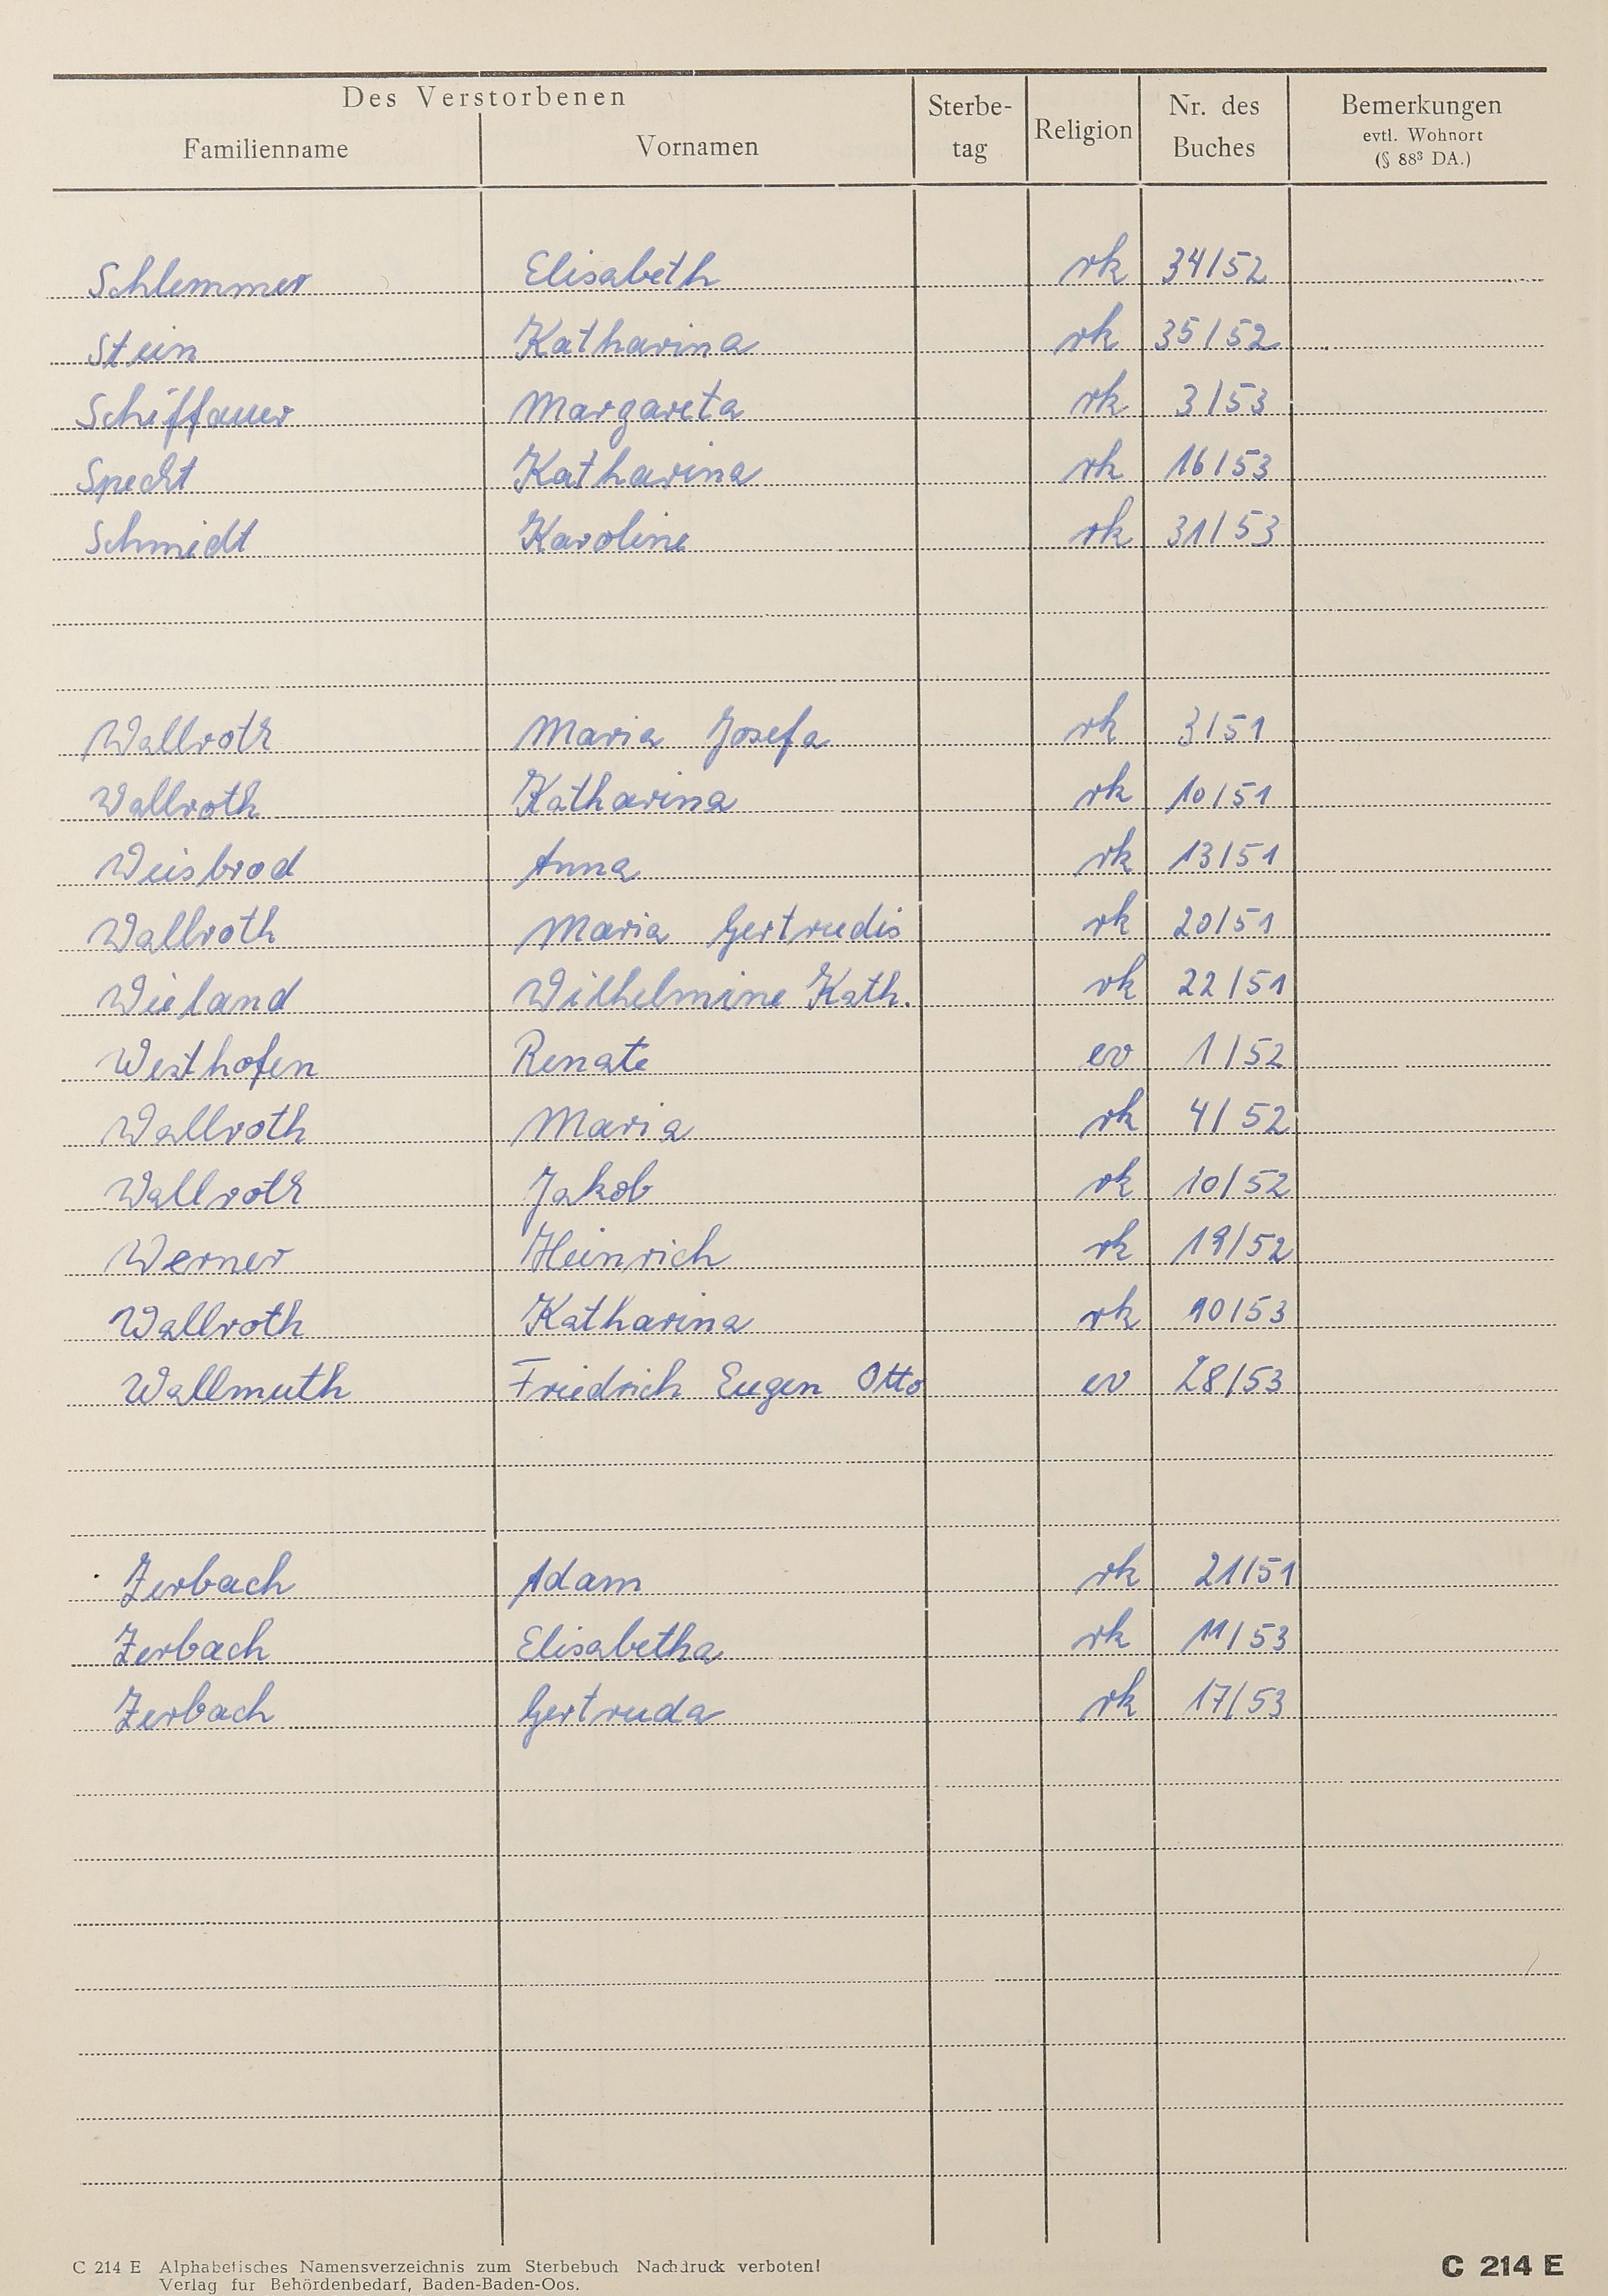 Des Verstorbenen
Familienname Vornamen Sterbe-tag Religion Nr. des Buches Bemerkungen evtl. Wohnort (§ 88³ DA.)
Schlemmer Elisabeth rk 34/52
Stein Katharina rk 35/52
Schiffauer Margareta rk 3/53
Specht Katharina rk 16/53
Schmidt Karoline rk 31/53
Wallroth Maria Josefa rk 3/51
Wallroth Katharina rk 10/51
Weisbrod Anna rk 13/51
Wallroth Maria Gertrudis rk 20/51
Wieland Wilhelmine Kath. rk 22/51
Westhofen Renate ev 1/52
Wallroth Maria rk 4/52
Wallroth Jakob rk 10/52
Werner Heinrich rk 19/52
Wallroth Katharina rk 10/53
Wallmuth Friedrich Eugen Otto ev 28/53
Zerbach Adam rk 21/51
Zerbach Elisabetha rk 11/53
Zerbach Gertruda rk 17/53
C 214 E Alphabetisches Namensverzeichnis zum Sterbebuch Nachdruck verboten!
Verlag für Behördenbedarf, Baden-Baden-Oos.
C 214 E